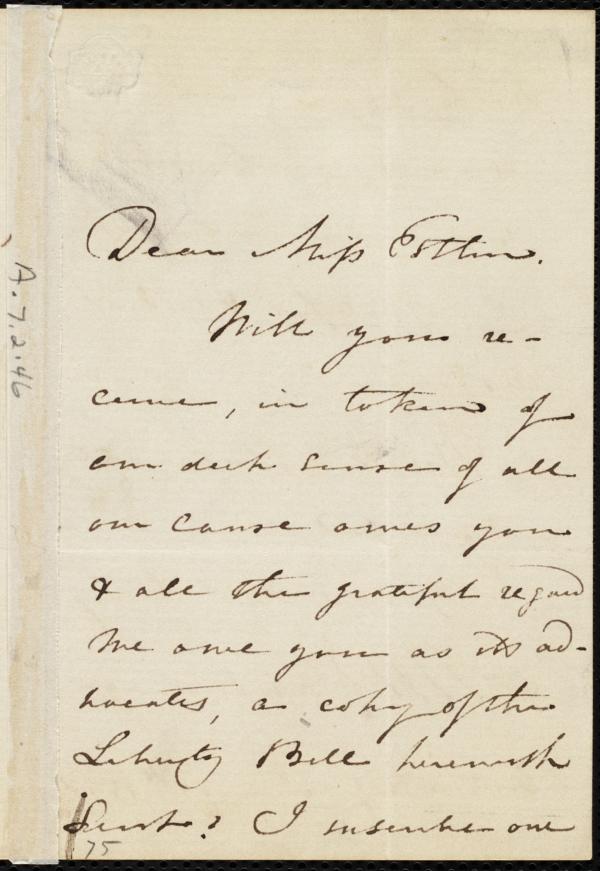 Dear Miss Estlin.
Will you re-
ceive, in token of
our deep sense of all
our Cause owes you
& all the grateful regard
we owe you as its ad-
vocates, a copy of the
Liberty Bell herewith
sent? I inscribe one
A.7.2.46
75